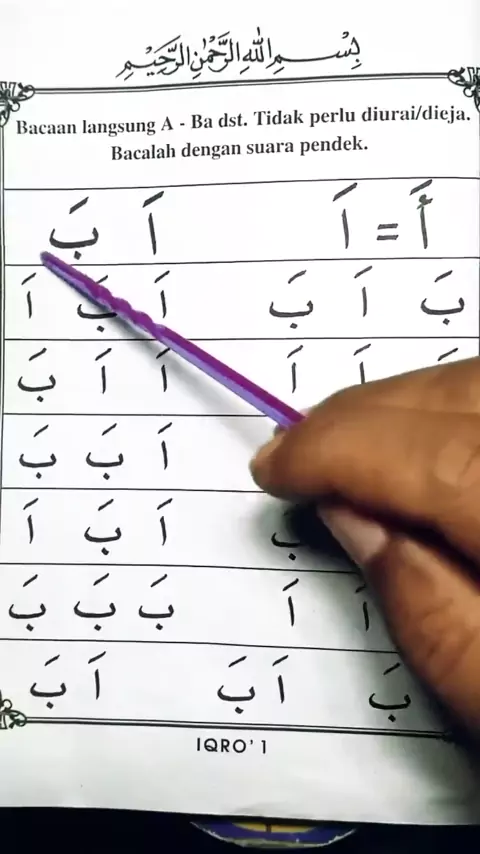 بِسْمِ اللهِ الرَّحْمٰنِ الرَّحِيْمِ
Bacaan langsung A - Ba dst. Tidak perlu diurai/dieja.
Bacalah dengan suara pendek.
أَ = اَ اَ بَ
بَ اَ بَ اَ بَ اَ
اَ اَ اَ بَ
اَ بَ بَ
اَ بَ اَ
اَ بَ بَ بَ
بَ اَ بَ اَ بَ
IQRO' 1